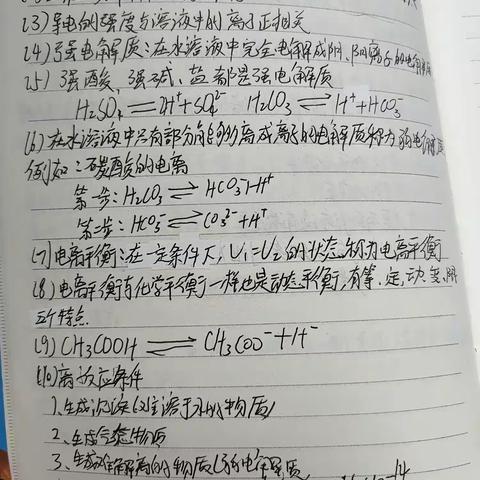 (3) 导电的强度与溶液中的离子正相关
(4) 强电解质:在水溶液中完全电离成阴、阳离子的电解质
(5) 强酸、强碱、盐都是强电解质
H₂SO₄ = 2H⁺+SO₄²⁻ H₂CO₃ ⇌ H⁺+HCO₃⁻
(6) 在水溶液中只有部分能够电离成离子的电解质称为弱电解质
例如:碳酸的电离
第一步:H₂CO₃ ⇌ HCO₃⁻+H⁺
第二步:HCO₃⁻ ⇌ CO₃²⁻+H⁺
(7) 电离平衡:在一定条件下,V₁=V₂的状态称为电离平衡
(8) 电离平衡有化学平衡一样也是动态平衡,有等、定、动、变、
五个特点
(9) CH₃COOH ⇌ CH₃COO⁻+H⁻
(10) 离 反应条件
1、生成沉淀 溶于水的物质)
2、生成气态物质
3、生成难电离的物质(弱电解质
14